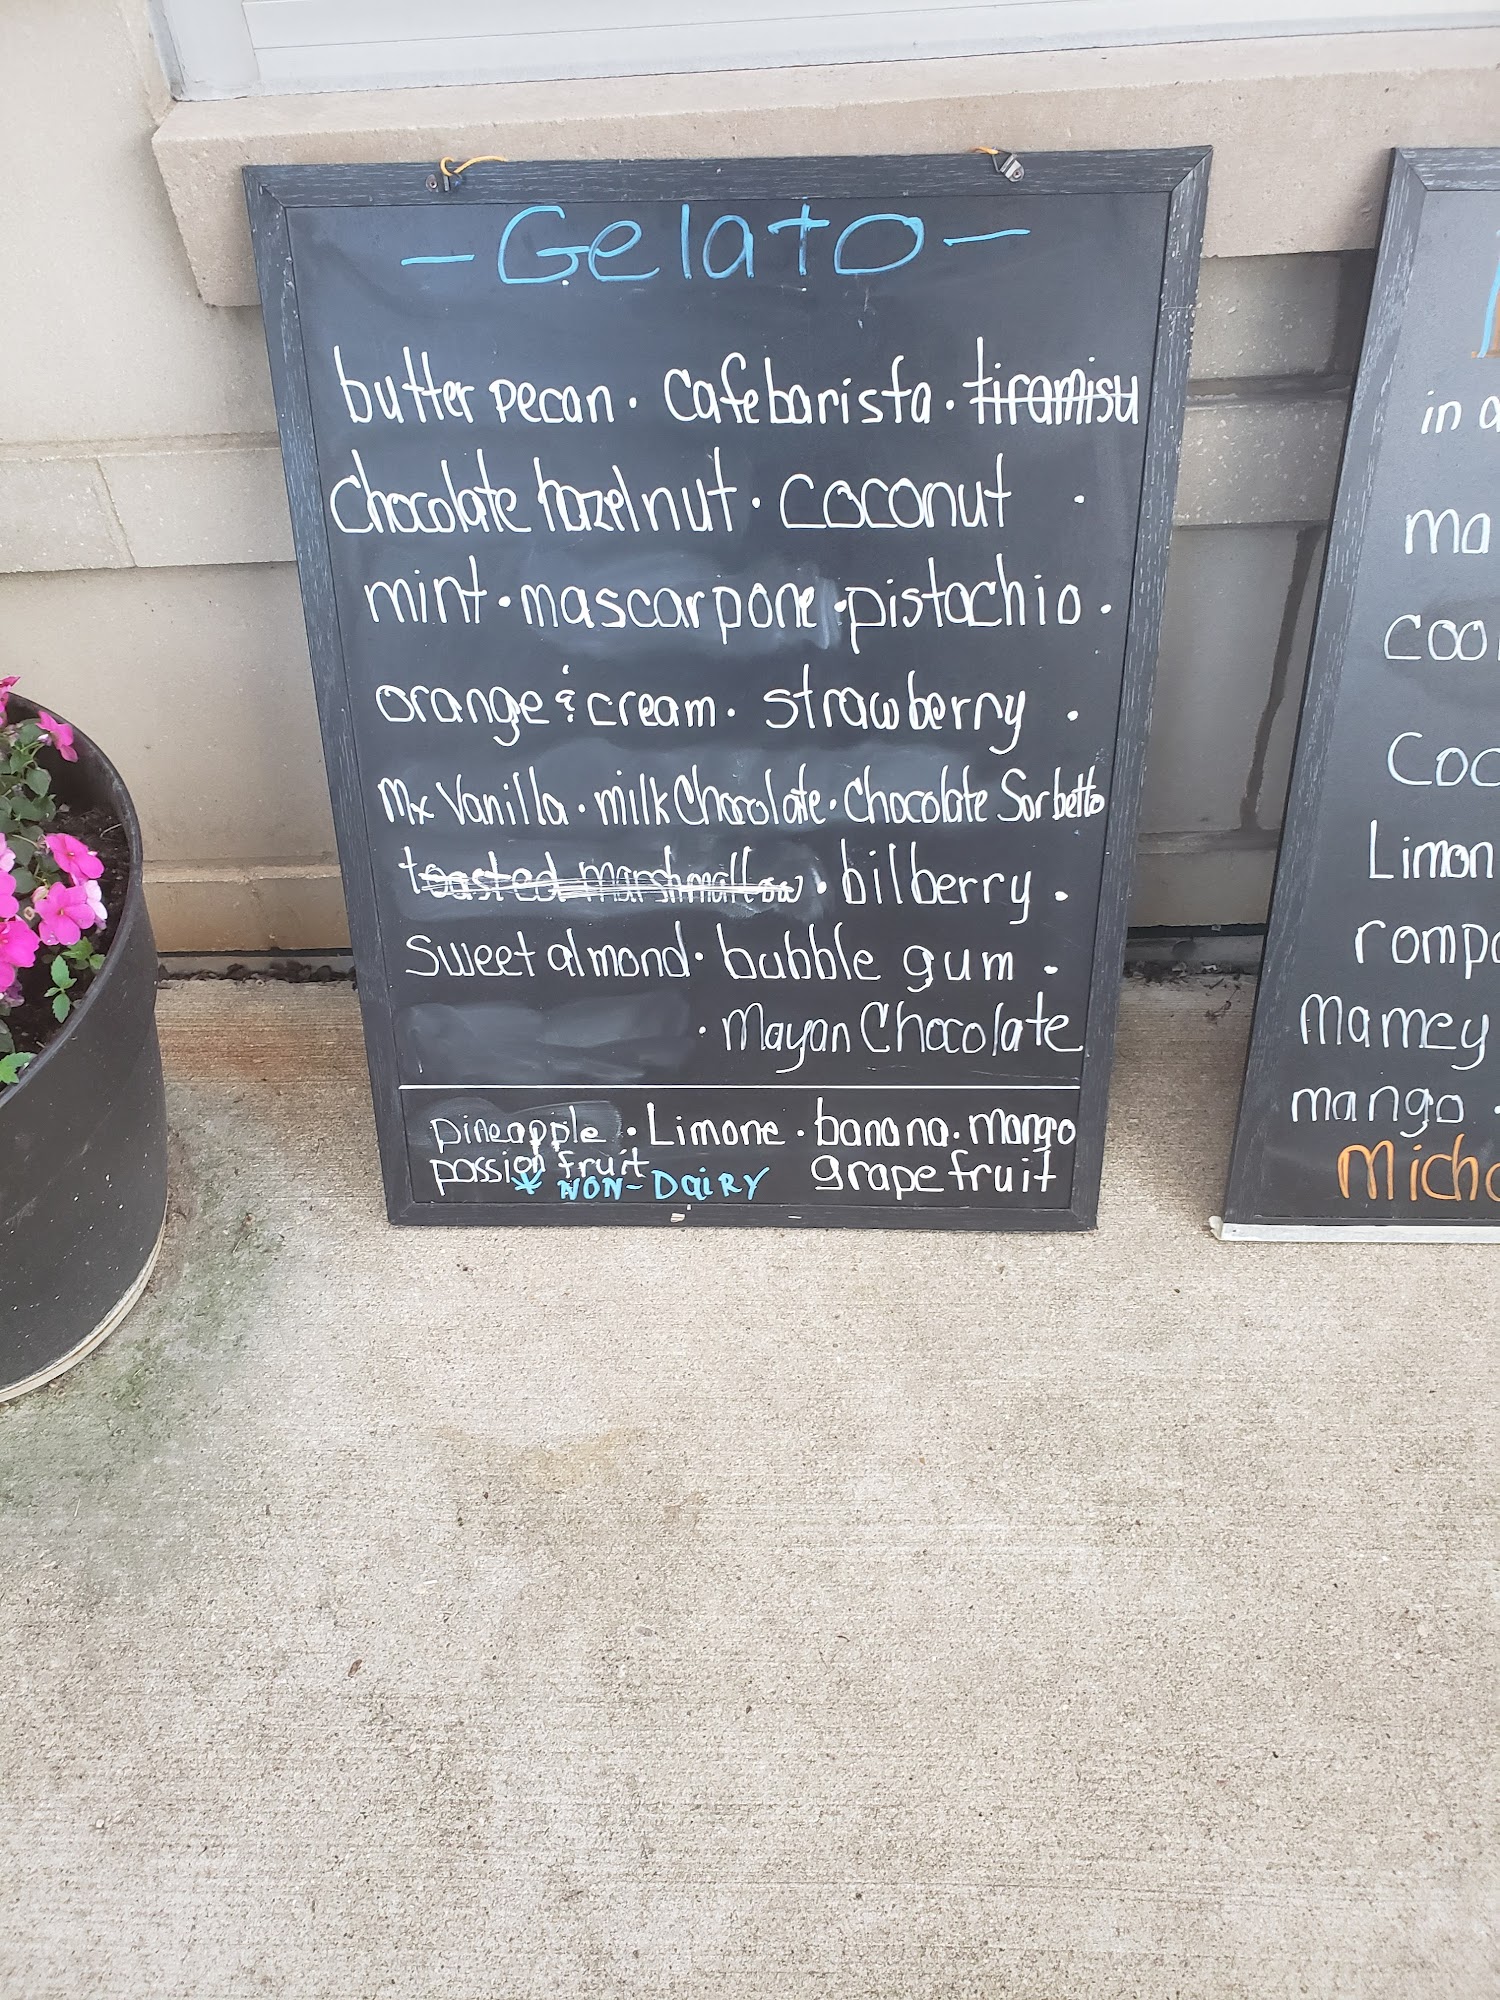 - Gelato -
butter pecan · Cafe barista · tiramisu
Chocolate hazelnut · coconut ·
mint · mascarpone · pistachio ·
orange & cream · strawberry ·
Mx Vanilla · milk Chocolate · Chocolate Sorbetto
toasted marshmallow · bilberry ·
sweet almond · bubble gum ·
· Mayan Chocolate
pineapple · Limone · banana · mango
passion fruit grapefruit
NON-DAIRY
in a
ma
coo
Coc
Limon
rompo
Mamey
mango ·
Micho